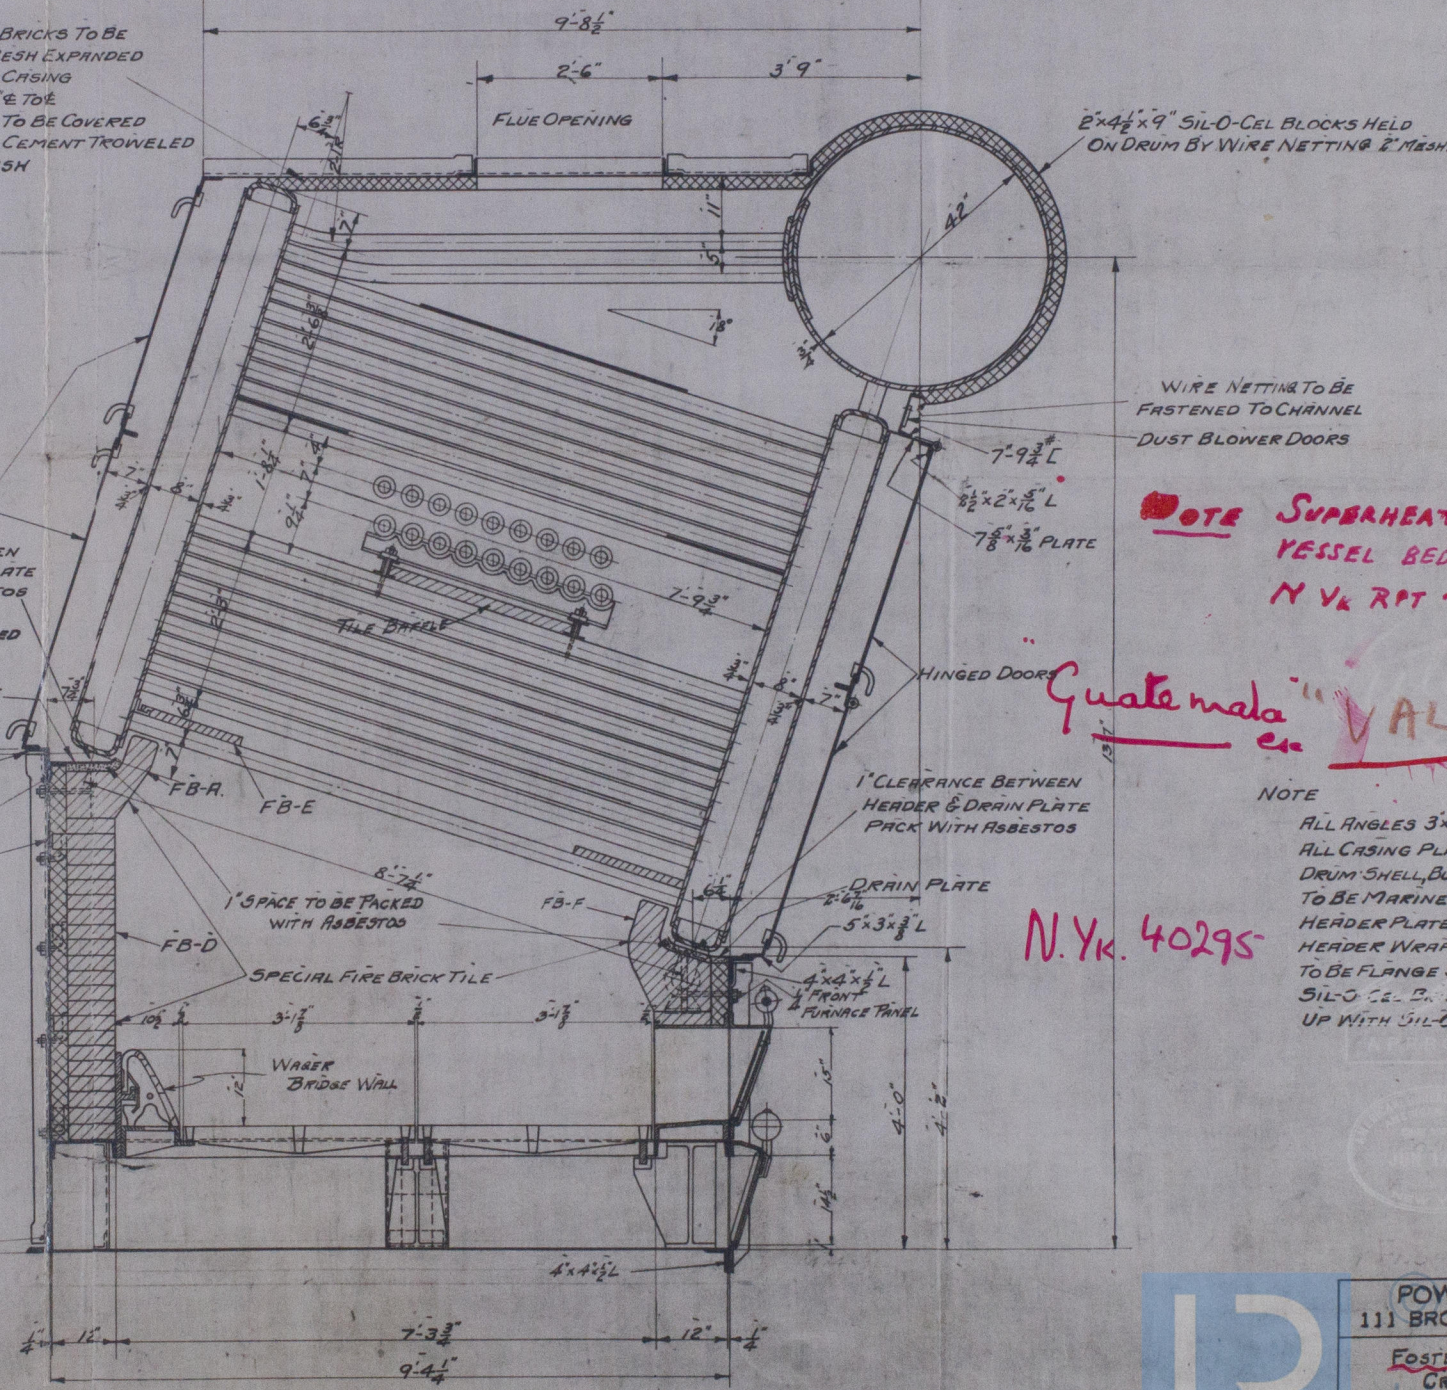 BRICKS TO BE
MESH EXPANDED
CASING
"℄ TO ℄
TO BE COVERED
CEMENT TROWELED
SH
9'-8½"
2'-6"
3'-9"
FLUE OPENING
2"x4½"x9" SIL-O-CEL BLOCKS HELD
ON DRUM BY WIRE NETTING 2" MESH
7"
11"
5"
42"
2'-6⅜"
18°
¾"
WIRE NETTING TO BE
FASTENED TO CHANNEL
DUST BLOWER DOORS
7"-9¾# [
2½"x2"x5/16" L
7⅝"x3/16" PLATE
7"
8"
1'-8½"
7"
4"
9¼"
EN
ATE
TOS
ED
NOTE SUPERHEAT
VESSEL BED
N YK RPT
7'-9¾"
TILE BAFFLE
2'-8"
8"
7"
HINGED DOORS
"Guatemala" VAL
13'-7"
7"
FB-A.
FB-E
1" CLEARANCE BETWEEN
HEADER & DRAIN PLATE
PACK WITH ASBESTOS
NOTE
ALL ANGLES 3"x
ALL CASING PLA
DRUM SHELL, BU
TO BE MARINE
HEADER PLATE
HEADER WRAP
TO BE FLANGE S
SIL-O-CEL B
UP WITH SIL-O
8'-7¼"
1" SPACE TO BE PACKED
WITH ASBESTOS
FB-F
6¼"
DRAIN PLATE
2'-6 7/16"
5"x3"x⅜" L
N.YK. 40295
FB-D
SPECIAL FIRE BRICK TILE
4"x4"x½" L
¼" FRONT
FURNACE PANEL
10½"
3'-1⅞"
3'-1⅞"
WAGER
BRIDGE WALL
12"
15"
6"
4'-0"
4'-2"
14½"
1"
4"x4"x½" L
¼" 12" 7'-3¾" 12" ¼"
9'-4¼"
POW
111 BRO
FOSTE
CR